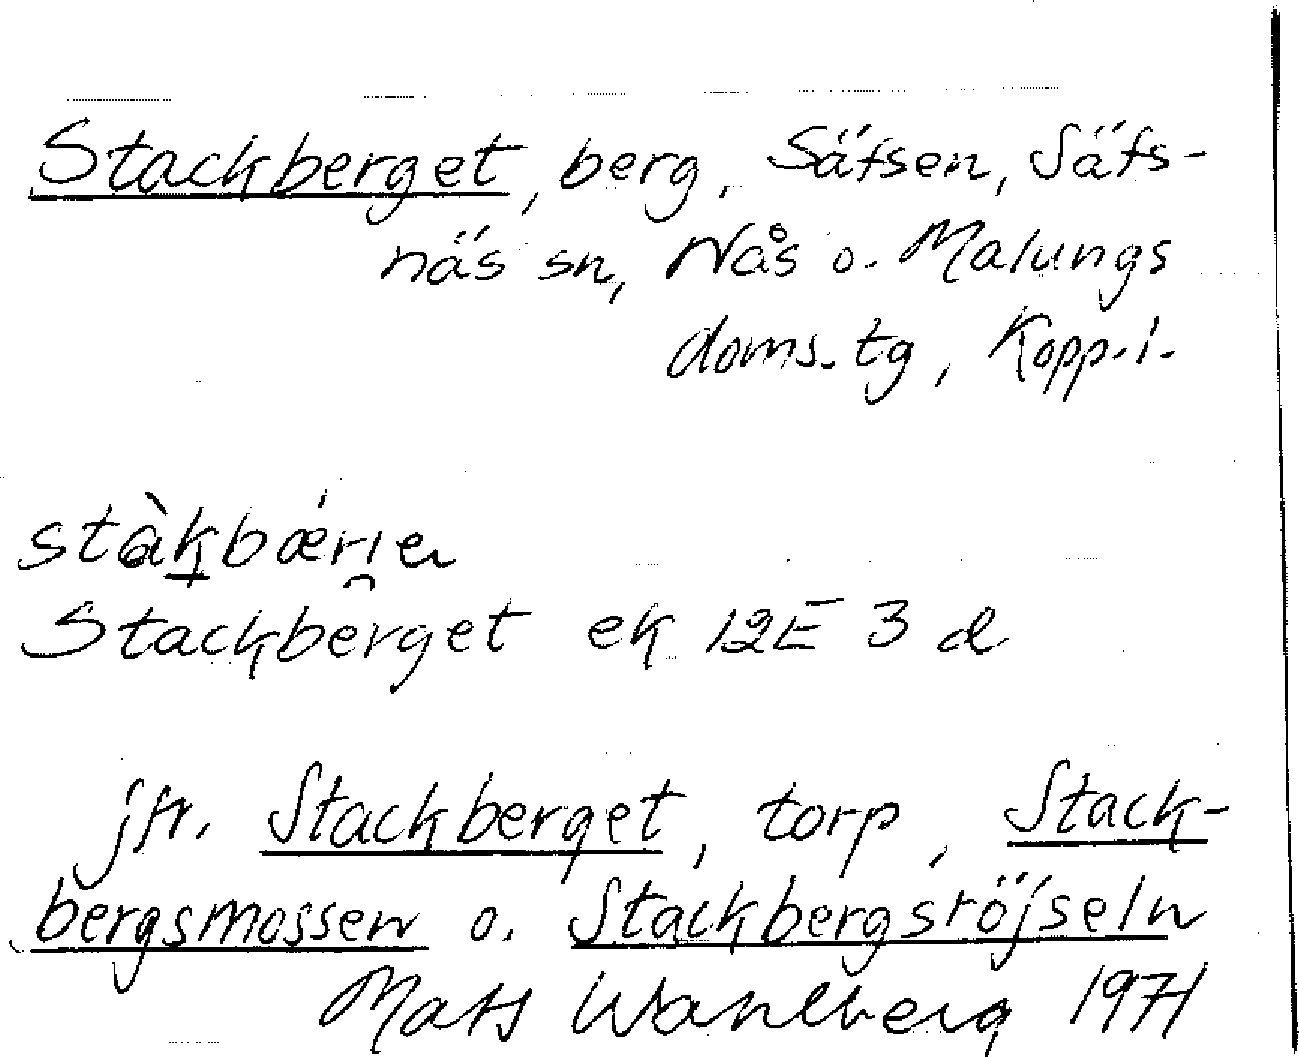 Stackberget, berg, Säfsen, Säfs-
näs sn, Nås o. Malungs
doms. tg, Kopp. l.
stàkbǽrı̯en
Stackberget ek 12E 3 d
jfr. Stackberget, torp, Stack-
bergsmossen o. Stackbergsröjseln
Mats Wahlberg 1971